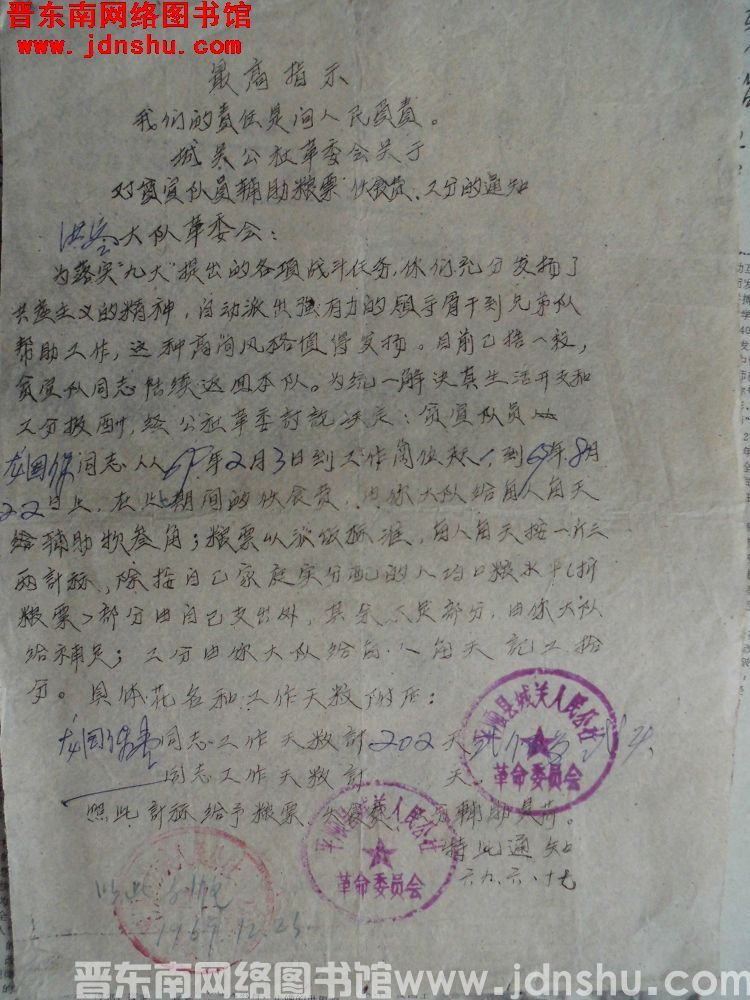 晋东南网络图书馆
www.jdnshu.com
最高指示
我们的责任是向人民负责。
城关公社革委会关于
对贫宣队员辅助粮票、伙食费、工分的通知
大队革委会：
为落实“九大”提出的各项战斗任务，你们充分发扬了
共产主义的精神，自动派出强有力的领导骨干到兄弟队
帮助工作，这种高尚风格值得发扬。目前已告一段，
贫宣队同志陆续返回本队。为统一解决其生活开支和
工分报酬，经公社革委讨论决定：贫宣队员
同志从69年2月3日到工作岗位起，到69年8月
22日止，在此期间的伙食费，由你大队给每人每天
给辅助物叁角；粮票以派饭标准，每人每天按一斤三
两计标，除按自己家庭实分配的人均口粮水平（折
粮票）部分由自己支出外，其余不足部分，由你大队
给补足；工分由你大队给每人每天记工拾
分。具体花名和工作天数附后：
同志工作天数计202天
同志工作天数计 天
照此计标给予粮票、伙食费、工分辅助是荷。
特此通知
六九、六、十七
平顺县城关人民公社
革命委员会
平顺县城关人民公社
革命委员会
1969.12.23.
晋东南网络图书馆www.jdnshu.com